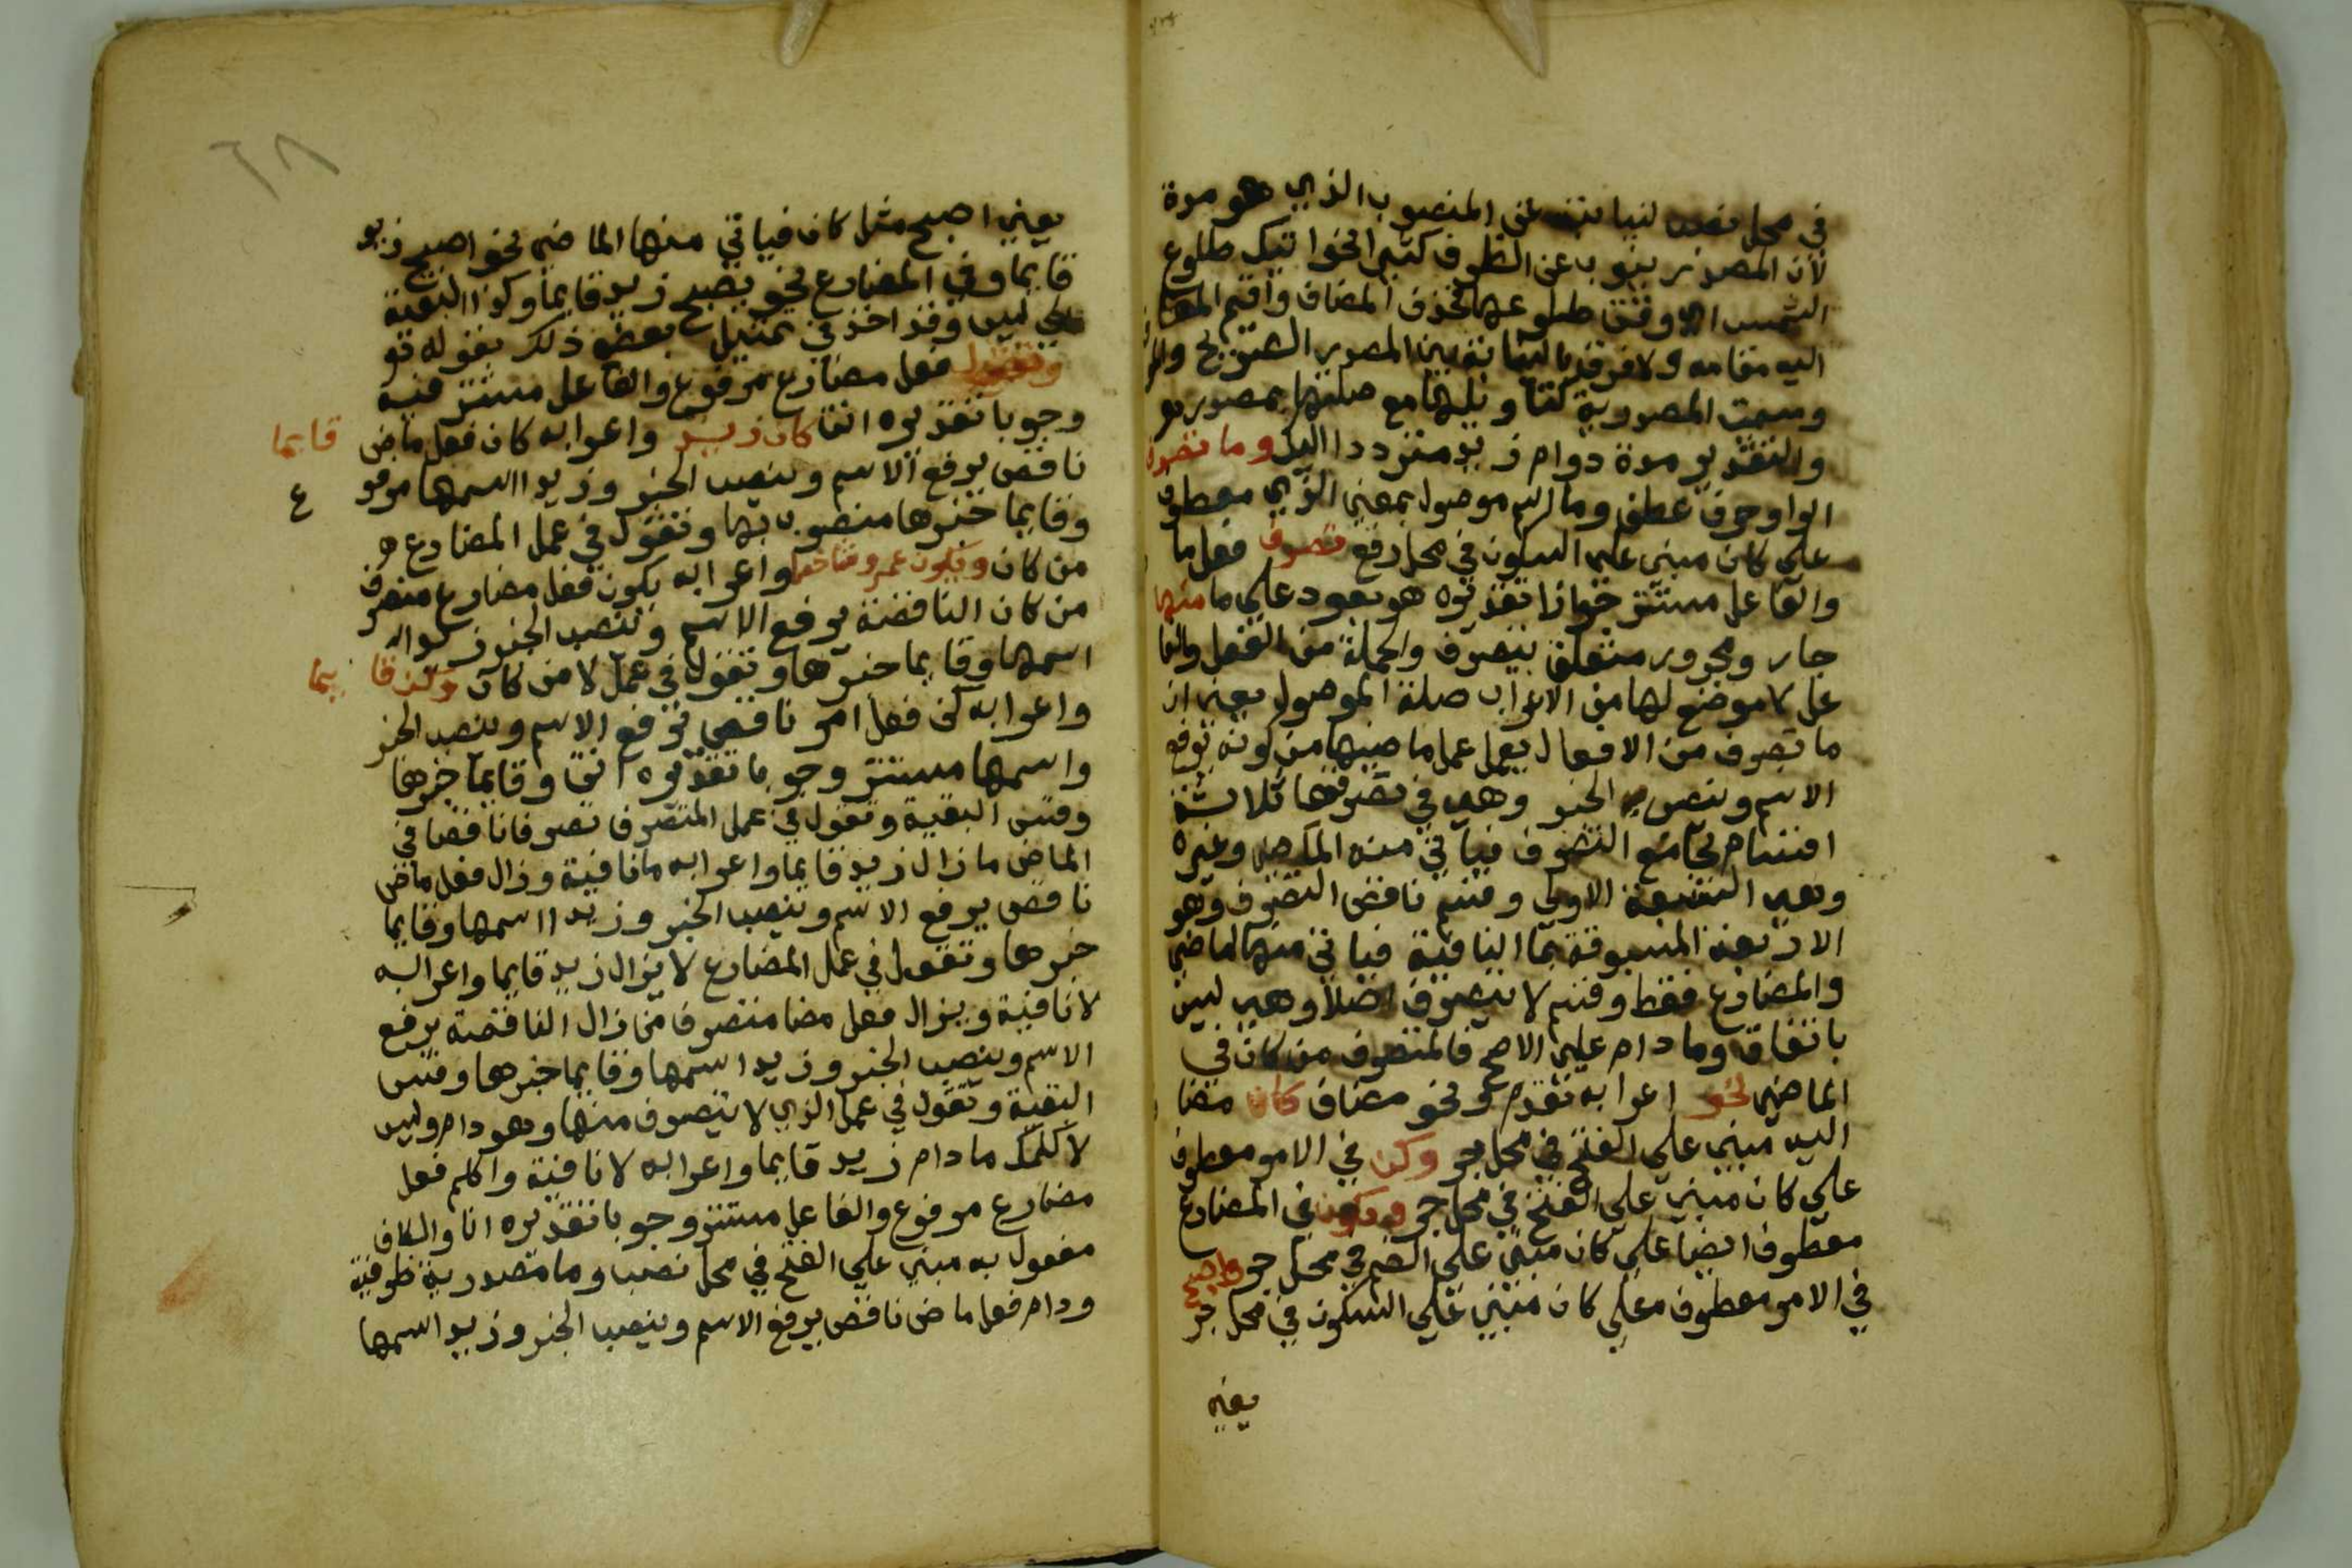 في محل نصب لنيابته عن المنصوب الذي هو مدة
لان المصدر ينوب عن الظرف كثيرا نحو اتيك طلوع
الشمس اي وقت طلوعها فحذف المضاف واقيم المضا
اليه مقامه ولا فرق في النيابة بين المصدر الصريح والمو
وسميت المصدرية لتاويلها مع صلتها بمصدر هو
والتقدير مدة دوام زيد مترددا اليك وما تصرف
الواو حرف عطف وما اسم موصول بمعني الذي معطوف
علي كان مبني علي السكون في محل رفع تصرف فعل ما
والفاعل مستتر جوازا تقديره هو يعود علي ما منها
جار ومجرور متعلق بتصرف والجملة من الفعل والفا
عل لا موضع لها من الاعراب صلة الموصول يعني ان
ما تصرف من الافعال يعمل عمل ماضيها من كونه يرفع
الاسم وينصب الخبر وهي في تصرفها ثلاثة
اقسام تام التصرف فياتي منه الماضي وغيره
وهي السبعة الاولي وقسم ناقص التصرف وهو
الاربعة المسبوقة بما النافية فياتي منها الماضي
والمضارع فقط وقسم لا يتصرف اصلا وهي ليس
باتفاق وما دام علي الاصح فالمتصرف من كان في
الماضي نحو اعرابه تقدم ونحو مضاف كان مضا
اليه مبني علي الفتح في محل جر وكن في الامر معطوف
علي كان مبني علي الفتح في محل جر ويكون في المضارع
معطوف ايضا علي كان مبني علي الضم في محل جر واصبح
في الامر معطوف معلي كان مبني علي السكون في محل جر
يعني
٦٨
يعني اصبح مثل كان فياتي منها الماضي نحو اصبح زيد
قايما وفي المضارع نحو يصبح زيد قايما وكذا البقية
الي ليس وقد اخذ في تمثيل بعض ذلك بقوله تو
وتقول فعل مضارع مرفوع والفاعل مستتر فيه
وجوبا تقديره انت كان زيد واعرابه كان فعل ماض قايما
ناقص يرفع الاسم وينصب الخبر وزيد اسمها مرفو ع
وقايما خبرها منصوب بها وتقول في عمل المضارع
من كان ويكون عمرو شاخصا واعرابه يكون فعل مضارع متصرف
من كان الناقصة يرفع الاسم وينصب الخبر
اسمها وقايما خبرها وتقول في عمل لا من كان وكن قا يما
واعرابه كن فعل امر ناقص ترفع الاسم وينصب الخبر
واسمها مستتر وجوبا تقديره انت وقايما خبرها
وقس البقية وتقول في عمل المتصرف تصرفا ناقصا في
الماض ما زال زيد قايما واعرابه ما نافية وزال فعل ماض
ناقص يرفع الاسم وينصب الخبر وزيد اسمها وقايما
خبرها وتقول في عمل المضارع لا يزال زيد قايما واعرابه
لا نافية ويزال فعل مضا متصرف من زال الناقصة يرفع
الاسم وينصب الخبر وزيد اسمها وقايما خبرها وقس
البقية وتقول في عمل الذي لا يتصرف منها وهو دام وليس
لا اكلمك ما دام زيد قايما واعرابه لا نافية واكلم فعل
مضارع مرفوع والفاعل مستتر وجوبا تقديره انا والكاف
مفعول به مبني علي الفتح في محل نصب وما مصدرية ظرفية
ودام فعل ماض ناقص يرفع الاسم وينصب الخبر وزيد اسمها